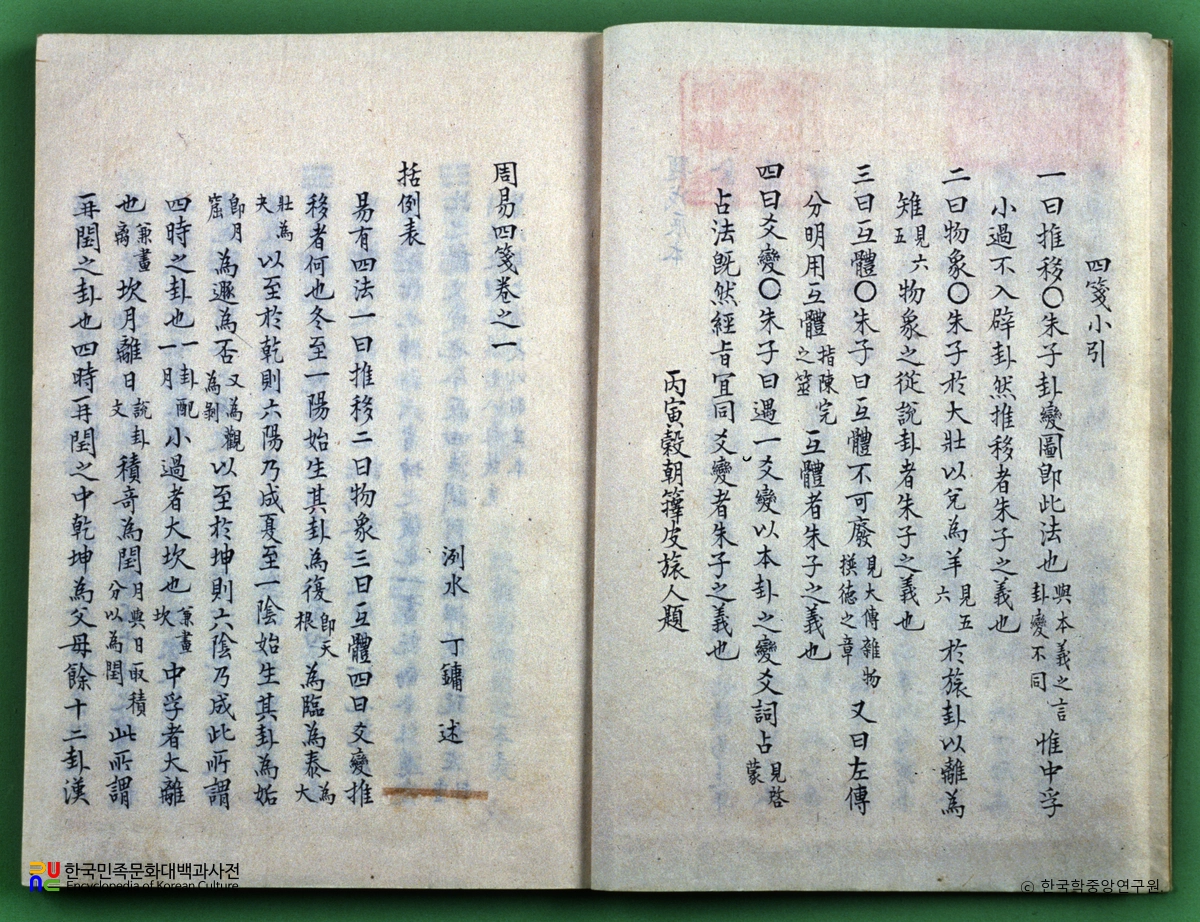 四箋小引
一曰推移〇朱子卦變圖卽此法也與本義之言卦變不同惟中孚
小過不入辟卦然推移者朱子之義也
二曰物象〇朱子於大壯以兌為羊見五六於旅卦以離為
雉見六五物象之從說卦者朱子之義也
三曰互體〇朱子曰互體不可廢見大傳雜物撰德之章又曰左傳
分明用互體指陳完之筮互體者朱子之義也
四曰爻變〇朱子曰遇一爻變以本卦之變爻詞占見啓蒙
占法旣然經旨宜同爻變者朱子之義也
丙寅穀朝籜皮旅人題
周易四箋卷之一
洌水 丁鏞 述
括例表
易有四法一曰推移二曰物象三曰互體四曰爻變推
移者何也冬至一陽始生其卦為復卽天根為臨為泰為大
壯為夬以至於乾則六陽乃成夏至一陰始生其卦為姤
卽月窟為遯為否又為觀為剝以至於坤則六陰乃成此所謂
四時之卦也一卦配一月小過者大坎也兼畫坎中孚者大離
也兼畫离坎月離日說卦文積奇為閏月與日取積分以為閏此所謂
再閏之卦也四時再閏之中乾坤為父母餘十二卦漢
한국민족문화대백과사전
Encyclopedia of Korean Culture
© 한국학중앙연구원